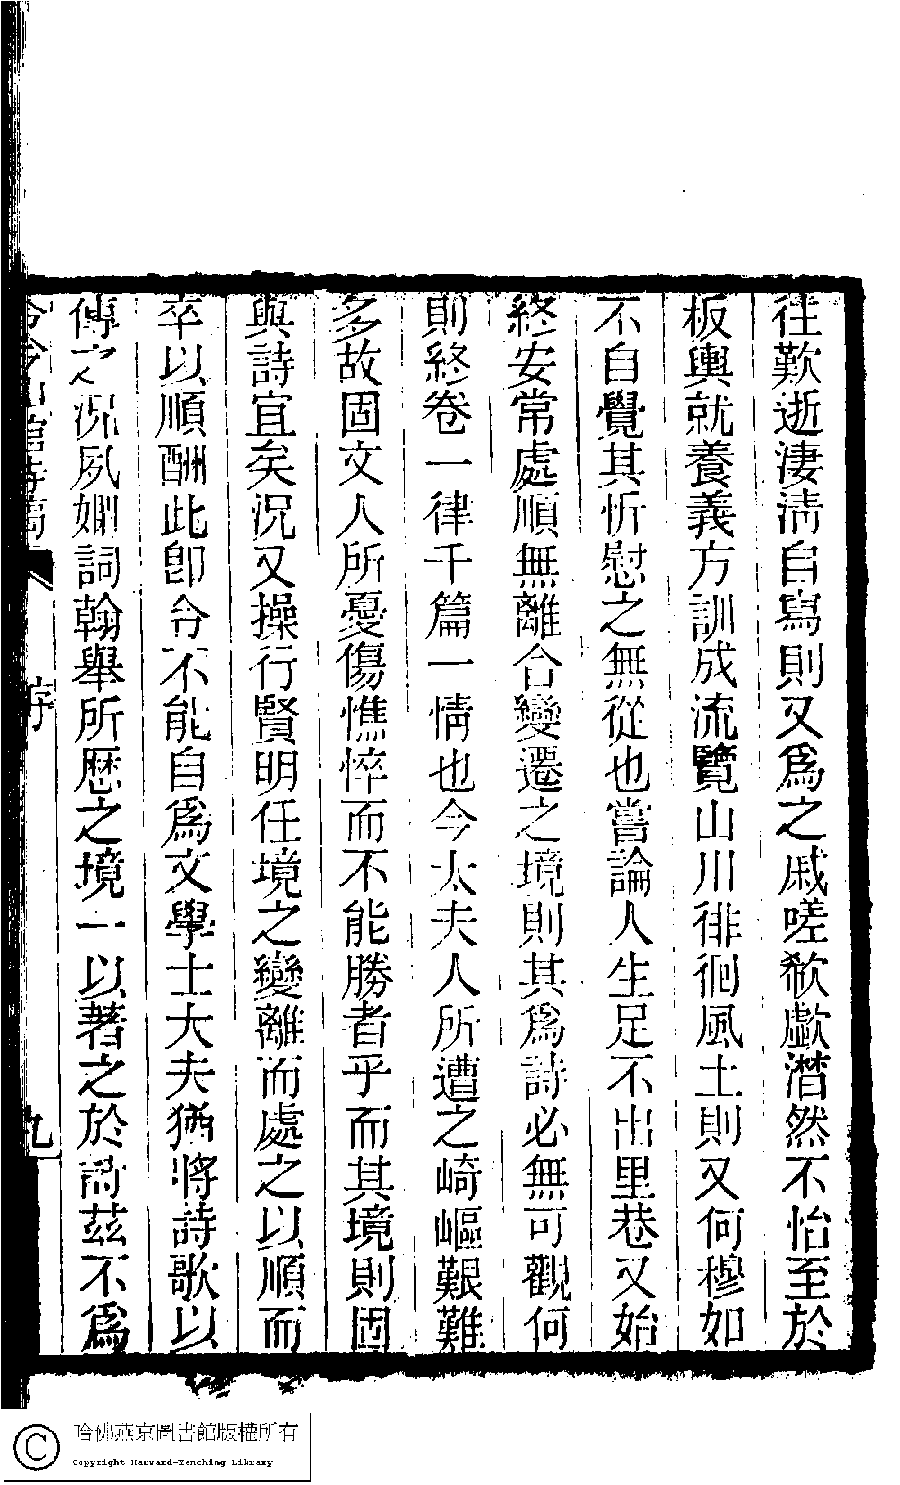 往歎逝淒淸自寫則又爲之戚嗟欷歔潸然不怡至於
板輿就養義方訓成流覽山川徘徊風土則又何穆如
不自覺其忻慰之無從也嘗論人生足不出里巷又始
終安常處順無離合變遷之境則其爲詩必無可觀何
則終卷一律千篇一情也今太夫人所遭之崎嶇艱難
多故固文人所憂傷憔悴而不能勝者乎而其境則固
與詩宜矣況又操行賢明任境之變離而處之以順而
卒以順酬此卽令不能自爲文學士大夫猶將詩歌以
傳之況夙嫻詞翰舉所歷之境一以著之於詩茲不爲
館詩
序
九
哈佛燕京圖書館版權所有
Copyright Harvard-Yenching Library